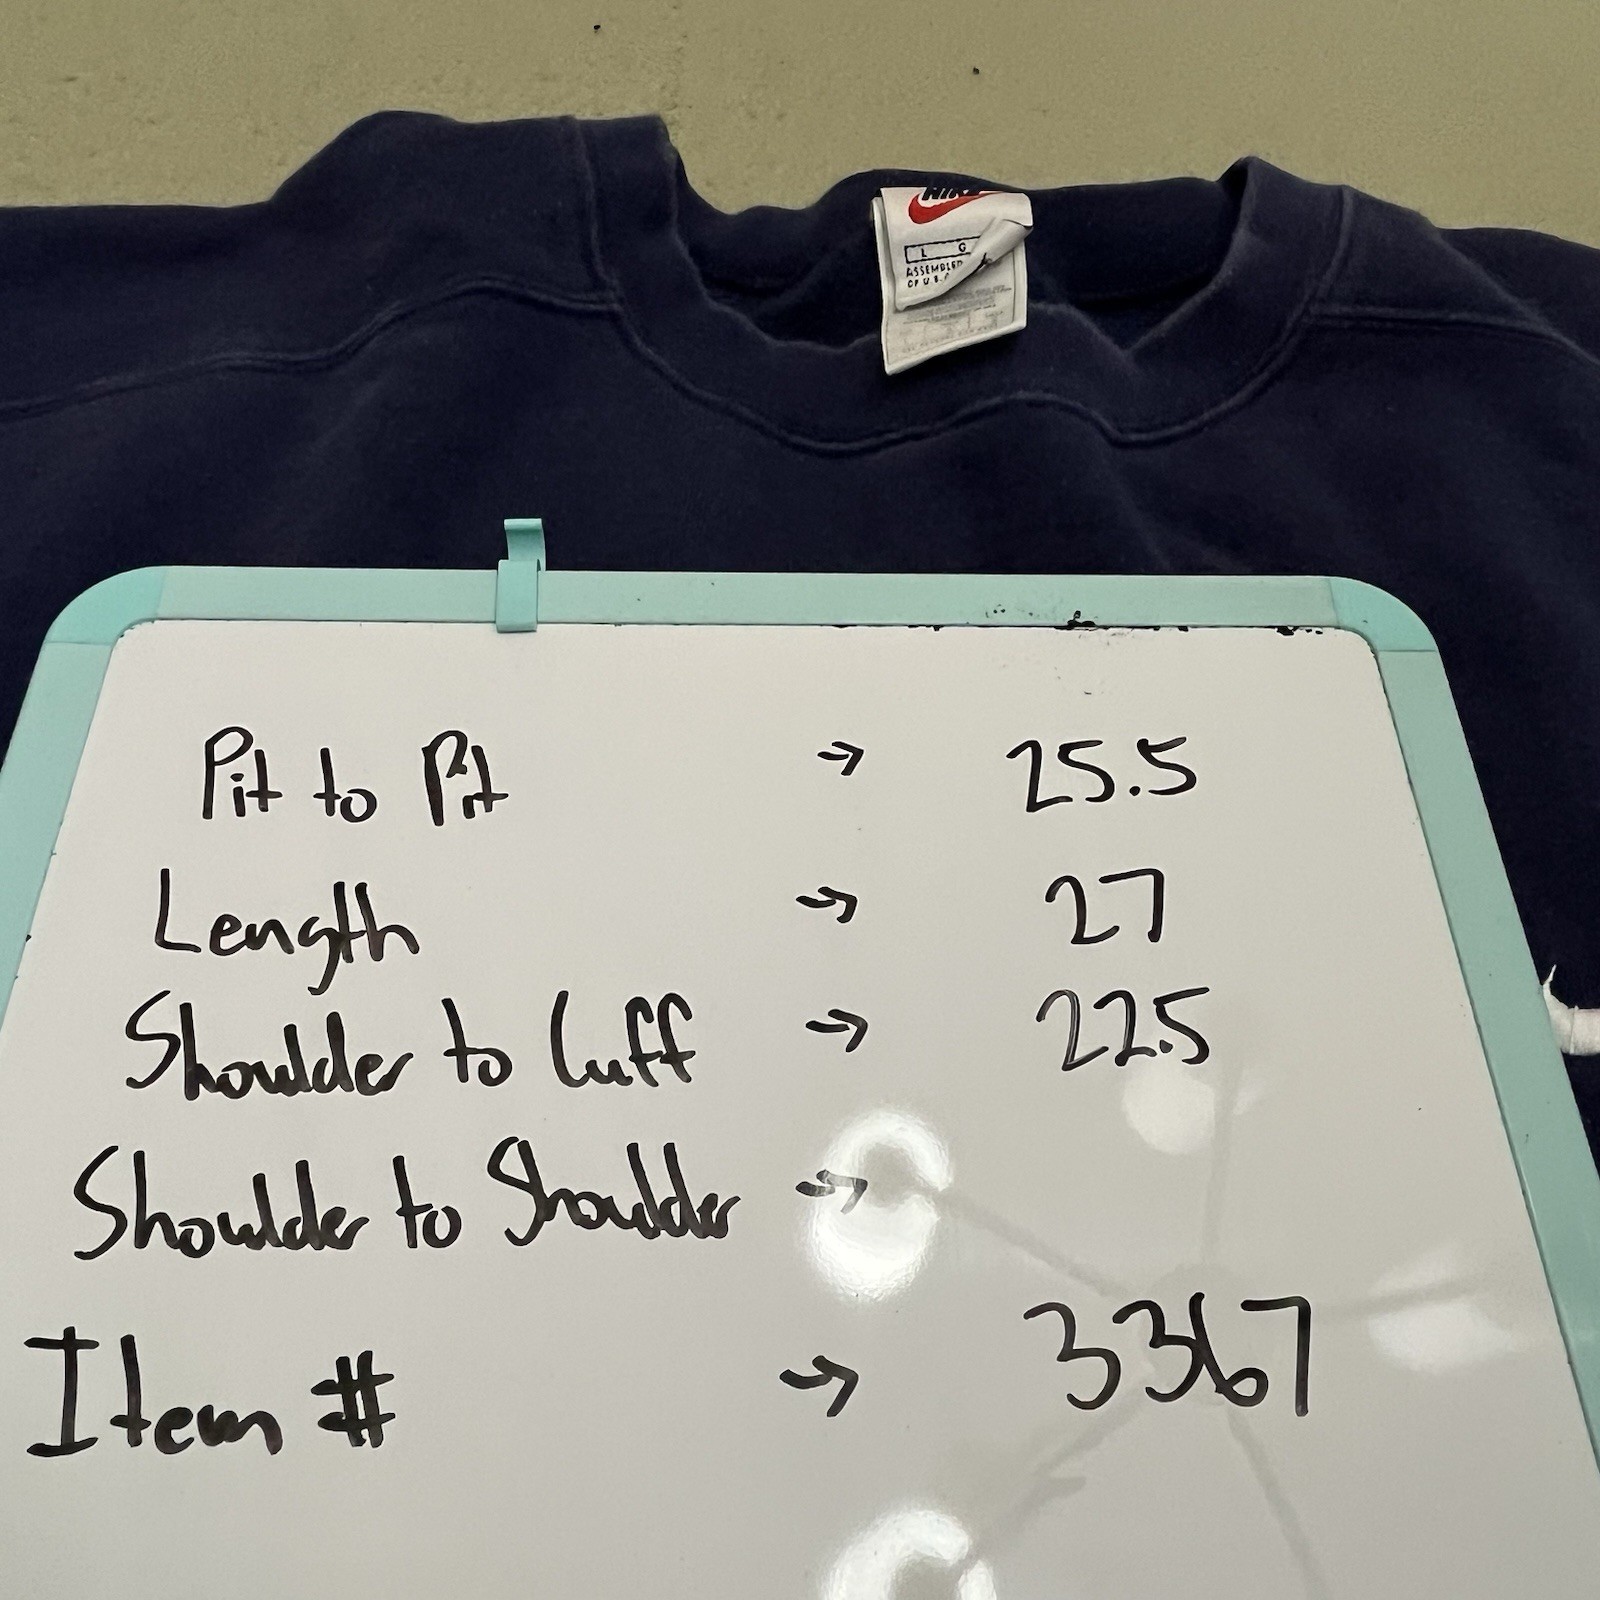 L G
ASSEMBLED
OF U.S.
Pit to Pit → 25.5
Length → 27
Shoulder to Cuff → 22.5
Shoulder to Shoulder →
Item # → 3367